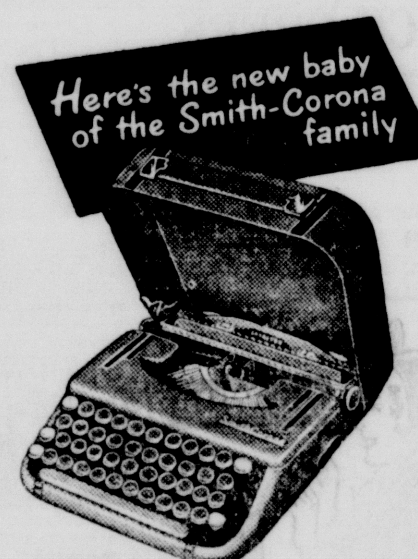 Here's the new baby
of the Smith-Corona
family